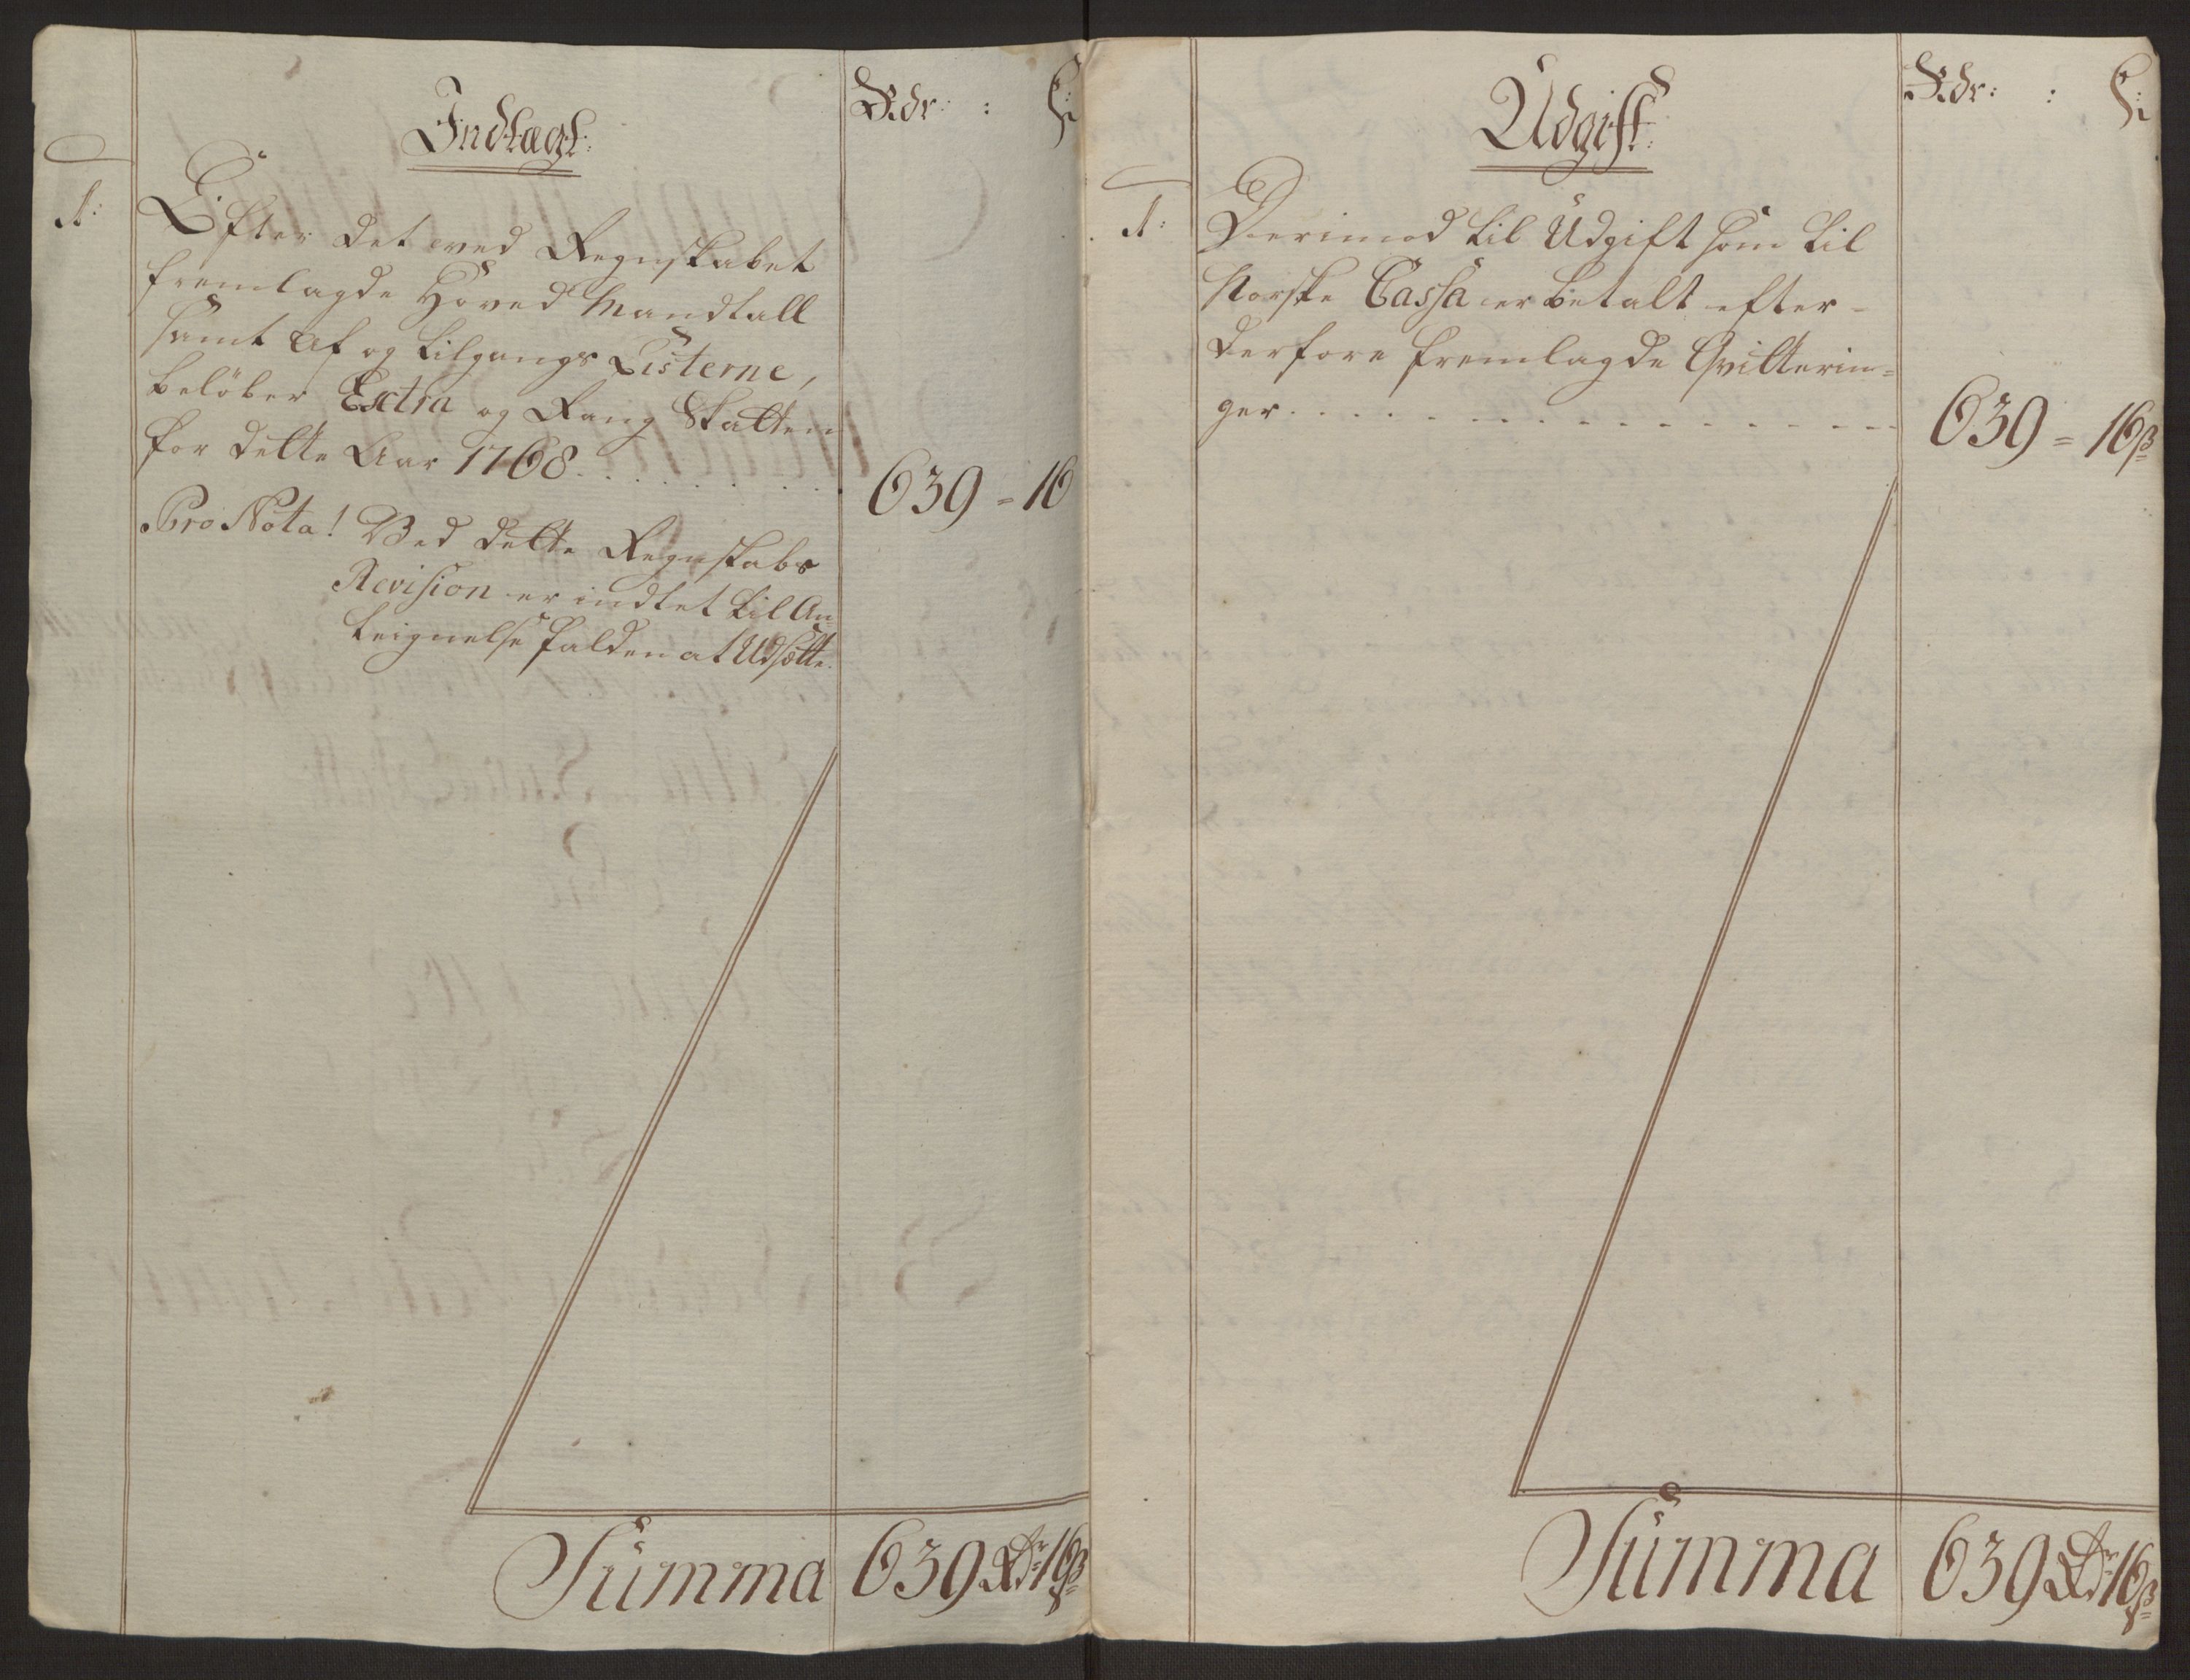 Indtægt:
Rdr: : ß:
1: Efter det ved Regnskabet
fremlagde Hoved Mandtall
samt Af og tilgangs Listerne,
beløber Extra og Rang Skatten
for dette Aar 1768. . . . . . . . 639 = 16
Pro Nota! Ved dette Regnskabs
Revision er indtet til An-
teignelse falden at Udsætte.
Summa 639 Rdr 16 ß
Udgift:
Rdr: : ß:
1: Derimod til Udgift som til
Norske Cassa er betalt efter-
derfore fremlagde Qvitterin=
ger. . . . . . . . . . . . . . . 639 = 16 ß
Summa 639 Rdr 16 ß